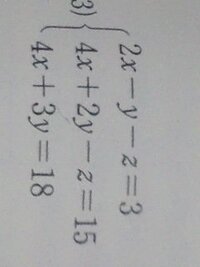 3)
2x−y−z=3
4x+2y−z=15
4x+3y=18